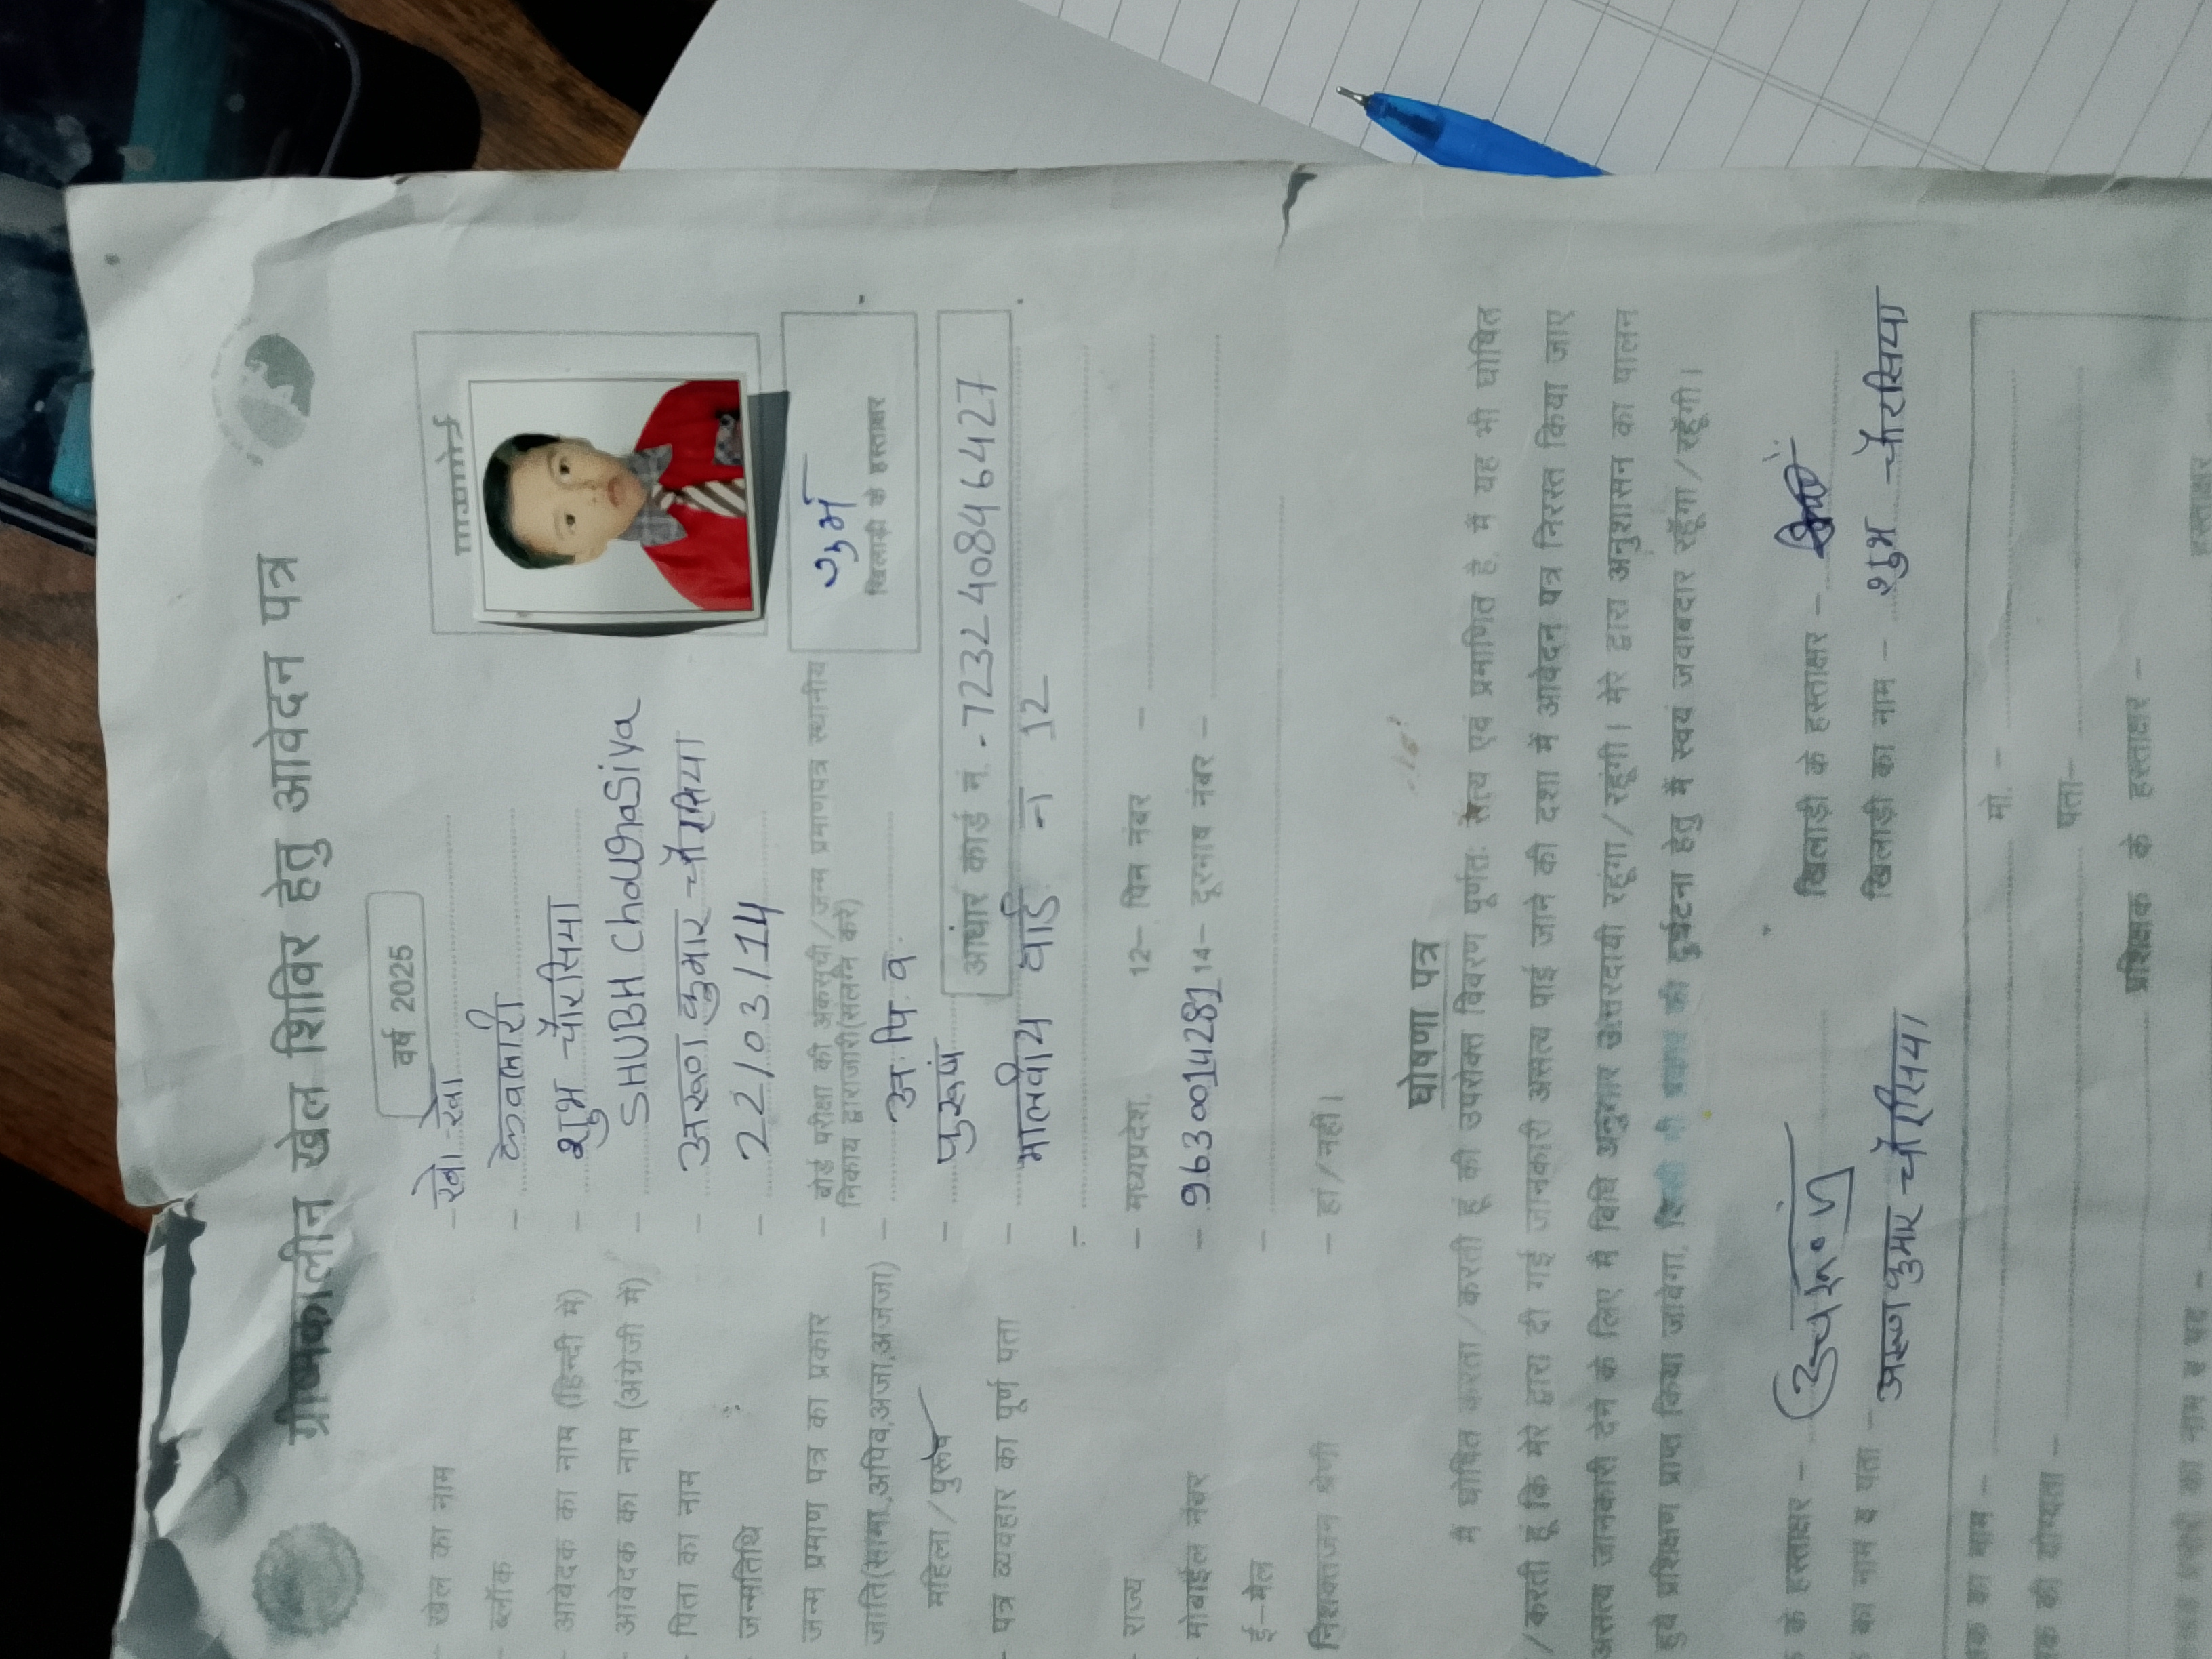 ग्रीष्मकालीन खेल शिविर हेतु आवेदन पत्र
वर्ष 2025
खेल का नाम – खो-खो
ब्लॉक – केवलारी
आवेदक का नाम (हिन्दी में) – शुभ चौरसिया
आवेदक का नाम (अंग्रेजी में) – SHUBH ChouraSiya
पिता का नाम – अरूण कुमार चौरसिया
जन्मतिथि – 22/03/14
जन्म प्रमाण पत्र का प्रकार – बोर्ड परीक्षा की अंकसूची/जन्म प्रमाणपत्र स्थानीय
निकाय द्वारा जारी(संलग्न करें)
शुभ
खिलाड़ी के हस्ताक्षर
जाति(सामा.,अपिव,अजा,अजजा) – अ. पि. व.
महिला/पुरूष – पुरूष
आधार कार्ड नं. - 7232 4084 6427
पत्र व्यवहार का पूर्ण पता – मालवीय वार्ड न 12
राज्य – मध्यप्रदेश 12– पिन नंबर –
मोबाईल नंबर – 9630014281 14– दूरभाष नंबर –
ई–मेल –
निशक्तजन श्रेणी – हां/नहीं।
घोषणा पत्र
मैं घोषित करता/करती हूं की उपरोक्त विवरण पूर्णतः सत्य एवं प्रमाणित है, मैं यह भी घोषित
/करती हूं कि मेरे द्वारा दी गई जानकारी असत्य पाई जाने की दशा में आवेदन पत्र निरस्त किया जाए
असत्य जानकारी देने के लिए मैं विधि अनुसार उत्तरदायी रहूंगा/रहूंगी। मेरे द्वारा अनुशासन का पालन
हुये प्रशिक्षण प्राप्त किया जावेगा, किसी भी प्रकार की दुर्घटना हेतु मैं स्वयं जवाबदार रहूँगा/रहूँगी।
के हस्ताक्षर – खिलाड़ी के हस्ताक्षर –
का नाम व पता – अरूण कुमार चौरसिया खिलाड़ी का नाम – शुभ चौरसिया
का नाम – मो. –
की योग्यता – पता–
प्रशिक्षक के हस्ताक्षर –
का नाम व पद – हस्ताक्षर